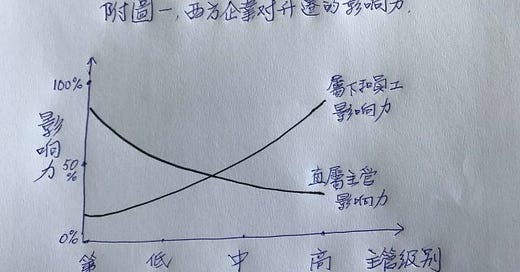 附圖一,西方企業对升遷的影响力.
100%
屬下和員工
影响力
影响力
50
%
直屬主管
影响力
0%
第 低 中 高 主管级别